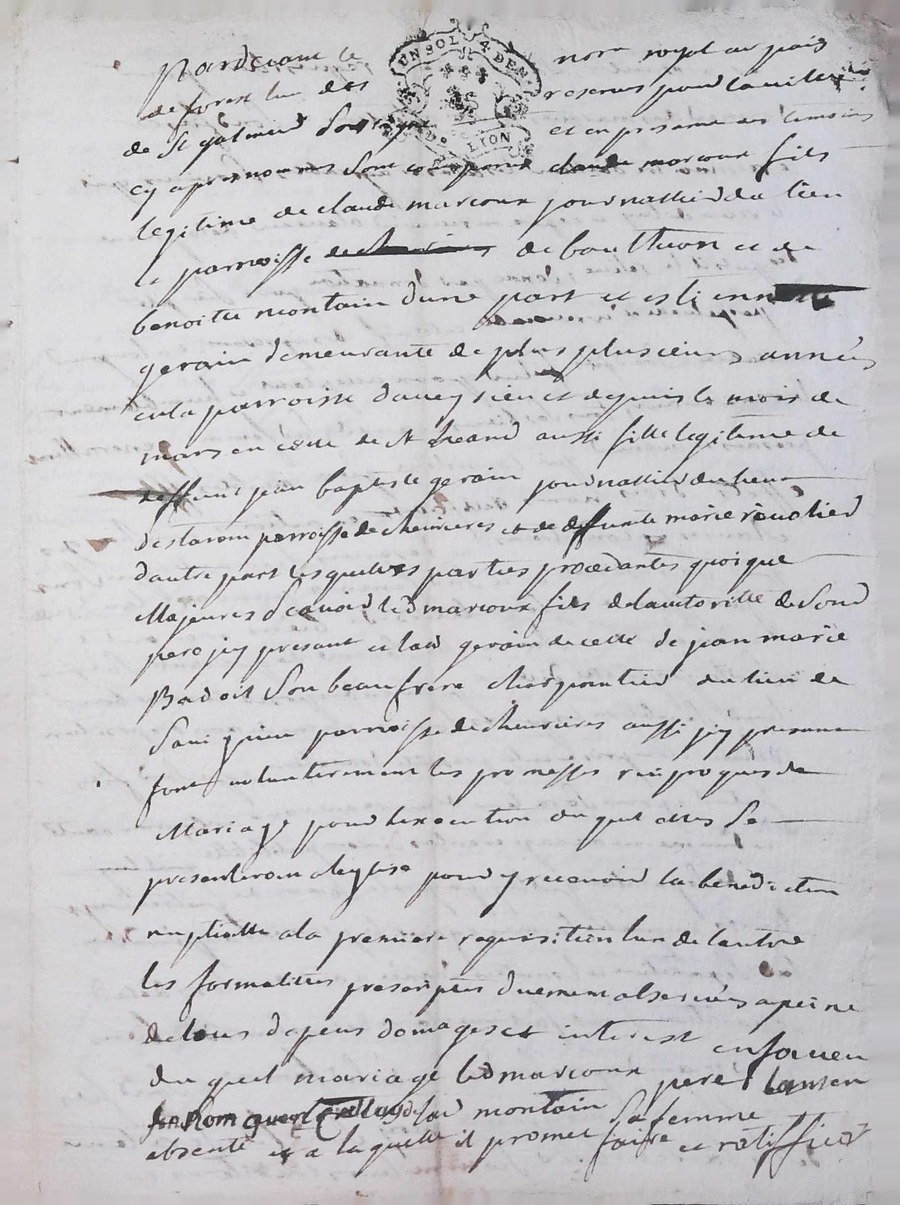 UN SOL 4 DEN.
LION
Pardevant le not.re royal au païs
de forest lun des reservés pour la ville
de St galmier Soussigné et en presence des temoins
cy apres nommes Sont comparus claude marcoux fils
legitime de claude marcoux journallier du lieu
et parroisse de boutheon et de
benoitte montain dune part et estiennette
gerain demeurante de plus plusieurs années
en la parroisse daveysieu et depuis le mois de
mars en celle de St heand aussi fille legitime de
deffunt jean baptiste gerain journallier du lieu
destaron parroisse de chevrieres et de deffunte marie rivollier
dautre part lesquelles parties procedantes quoique
Majeures Scavoir led marcoux fils de lautoritte de Sond
pere jcy presant et lad gerain de celle de jean marie
Badoit Son beau frere charpentier du lieu de
parroisse de chevrieres aussi jcy presant
font volonterement les promesses reciproques de
Mariage pour lexecution du quel elles Se
presenteront a leglise pour y recevoir la benediction
nuptialle a la premiere requisition lun de lautre
les formalites prescriptes duement observées a peine
de tous depens domages et interest en faveur
du quel mariage led marcoux pere tant en
Son nom que de lad montain Sa femme
absente et a laquelle il promet faire et ratiffier